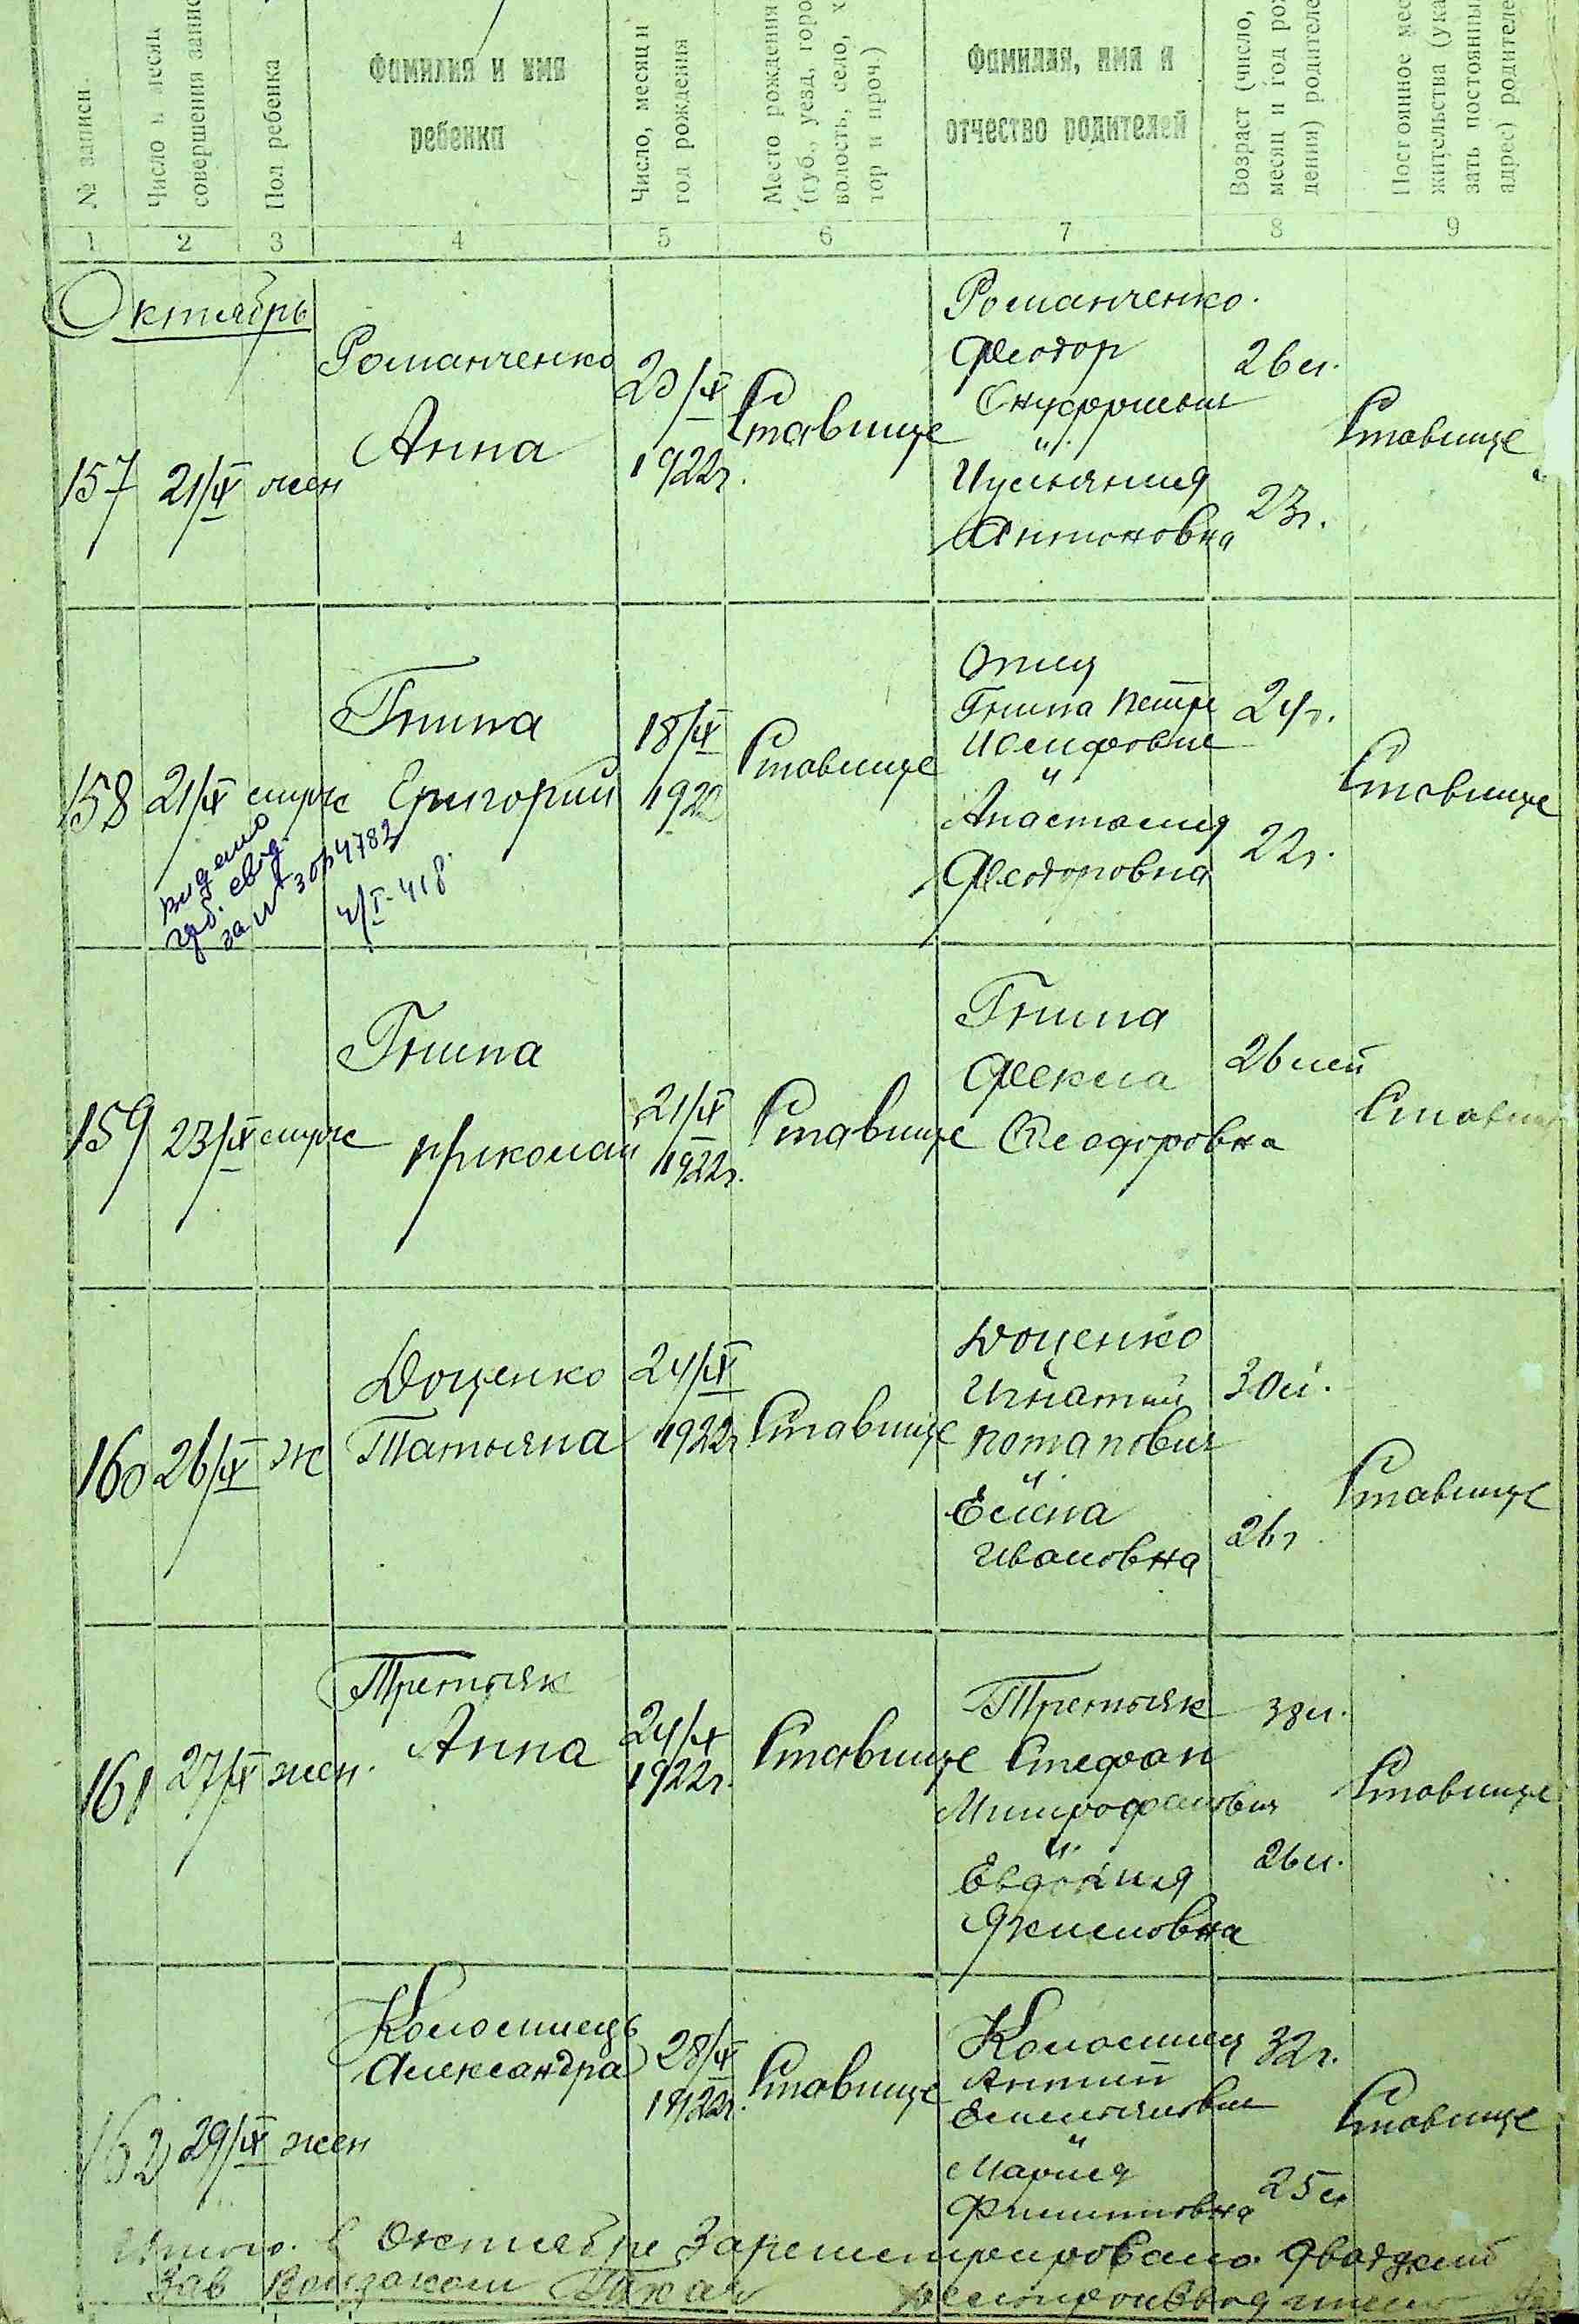 № записи.
Число и месяц
совершения запис
Пол ребенка
Фамилия и имя
ребенка
Число, месяц и
год рождения
Место рождения
(губ., уезд, горо
волость, село, х
тор и проч.)
Фамилия, имя и
отчество родителей
Возраст (число,
месяц и год рож
дения) родителе
Постоянное мес
жительства (ука
зать постоянны
адрес) родителе
1 2 3 4 5 6 7 8 9
Октябрь
157 21/IX жен
Романченко
Анна
20/IX
1922г.
Ставище
Романченко
Феодор
Онуфриевич
и
Иулияния
Антоновна
26 л.
23г.
Ставище
158 21/IX муж
Гнипа
Григорий
18/IX
1922
Ставище
Отец
Гнипа Петр
Иосифович
и
Анастасия
Феодоровна
24г.
22г.
Ставище
видано
свид.
за №
159 23/IX муж
Гнипа
Николай
21/IX
1922г.
Ставище
Гнипа
Фекла
Феодоровна
26 лет
Ставище
160 26/IX ж
Доценко
Татьяна
24/IX
1922г
Ставище
Доценко
Игнатий
Потапович
и
Елена
Ивановна
30 л.
26г
Ставище
161 27/IX жен.
Третьяк
Анна
24/IX
1922г.
Ставище
Третьяк
Стефан
Митрофанович
и
Евдокия
Якимовна
38 л.
26 л.
Ставище
162 29/IX жен
Коломиець
Александра
28/IX
1922г.
Ставище
Коломиец
Антип
Емельянович
и
Мария
Филипповна
32г.
25 л
Ставище
Итого в Октябре Зарегистрировано двадцать
Зав
Делопроизводитель